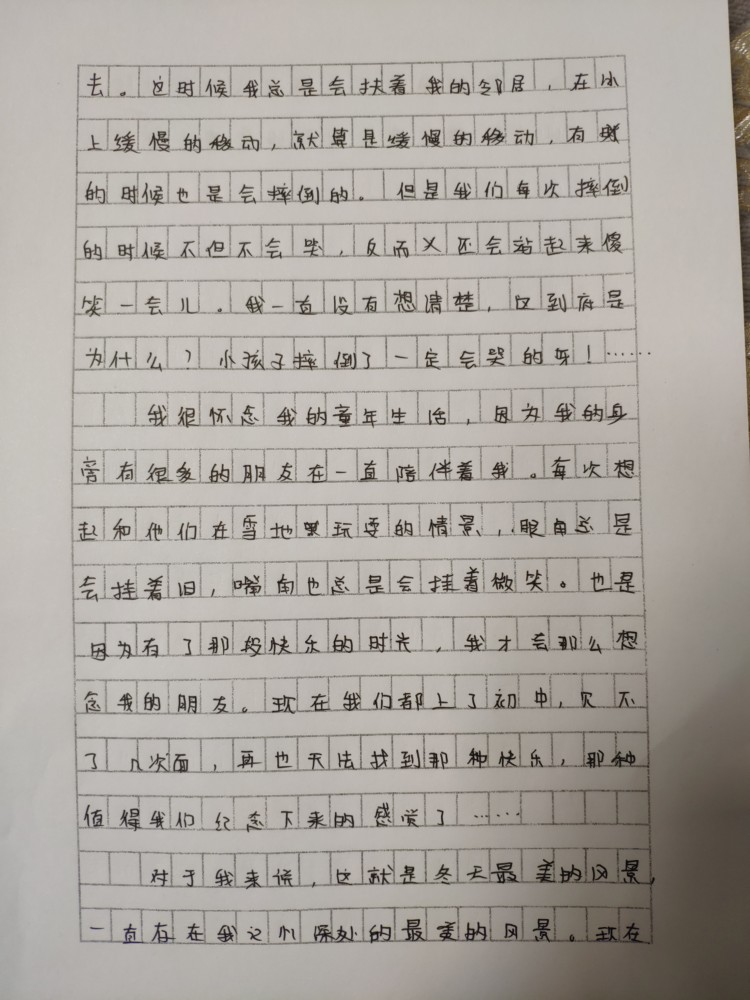 去。这时候我总是会扶着我的邻居，在冰
上缓慢的移动，就算是缓慢的移动，有时
的时候也是会摔倒的。但是我们每次摔倒
的时候不但不会哭，反而又还会站起来傻
笑一会儿。我一直没有想清楚，这到底是
为什么？小孩子摔倒了一定会哭的呀！……
我很怀念我的童年生活，因为我的身
旁有很多的朋友在一直陪伴着我。每次想
起和他们在雪地里玩耍的情景，眼角总是
会挂着泪，嘴角也总是会挂着微笑。也是
因为有了那段快乐的时光，我才会那么想
念我的朋友。现在我们都上了初中，见不
了几次面，再也无法找到那种快乐，那种
值得我们纪念下来的感觉了……
对于我来说，这就是冬天最美的风景，
一直存在我记忆深处的最美的风景。现在